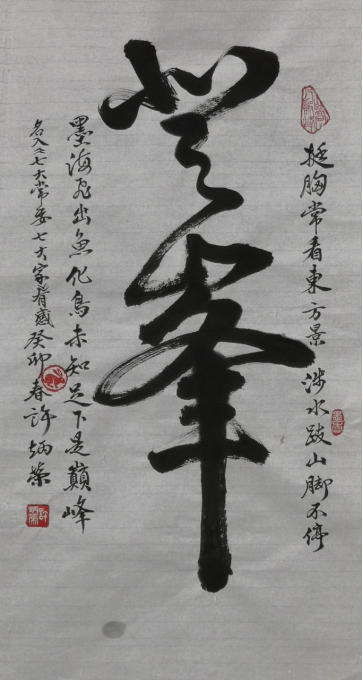 挺胸常看東方景 涉水跋山腳不停
登峰
墨海飛出魚化鳥未知足下是巔峰
名入二七大常委七大家有感癸卯春許炳榮